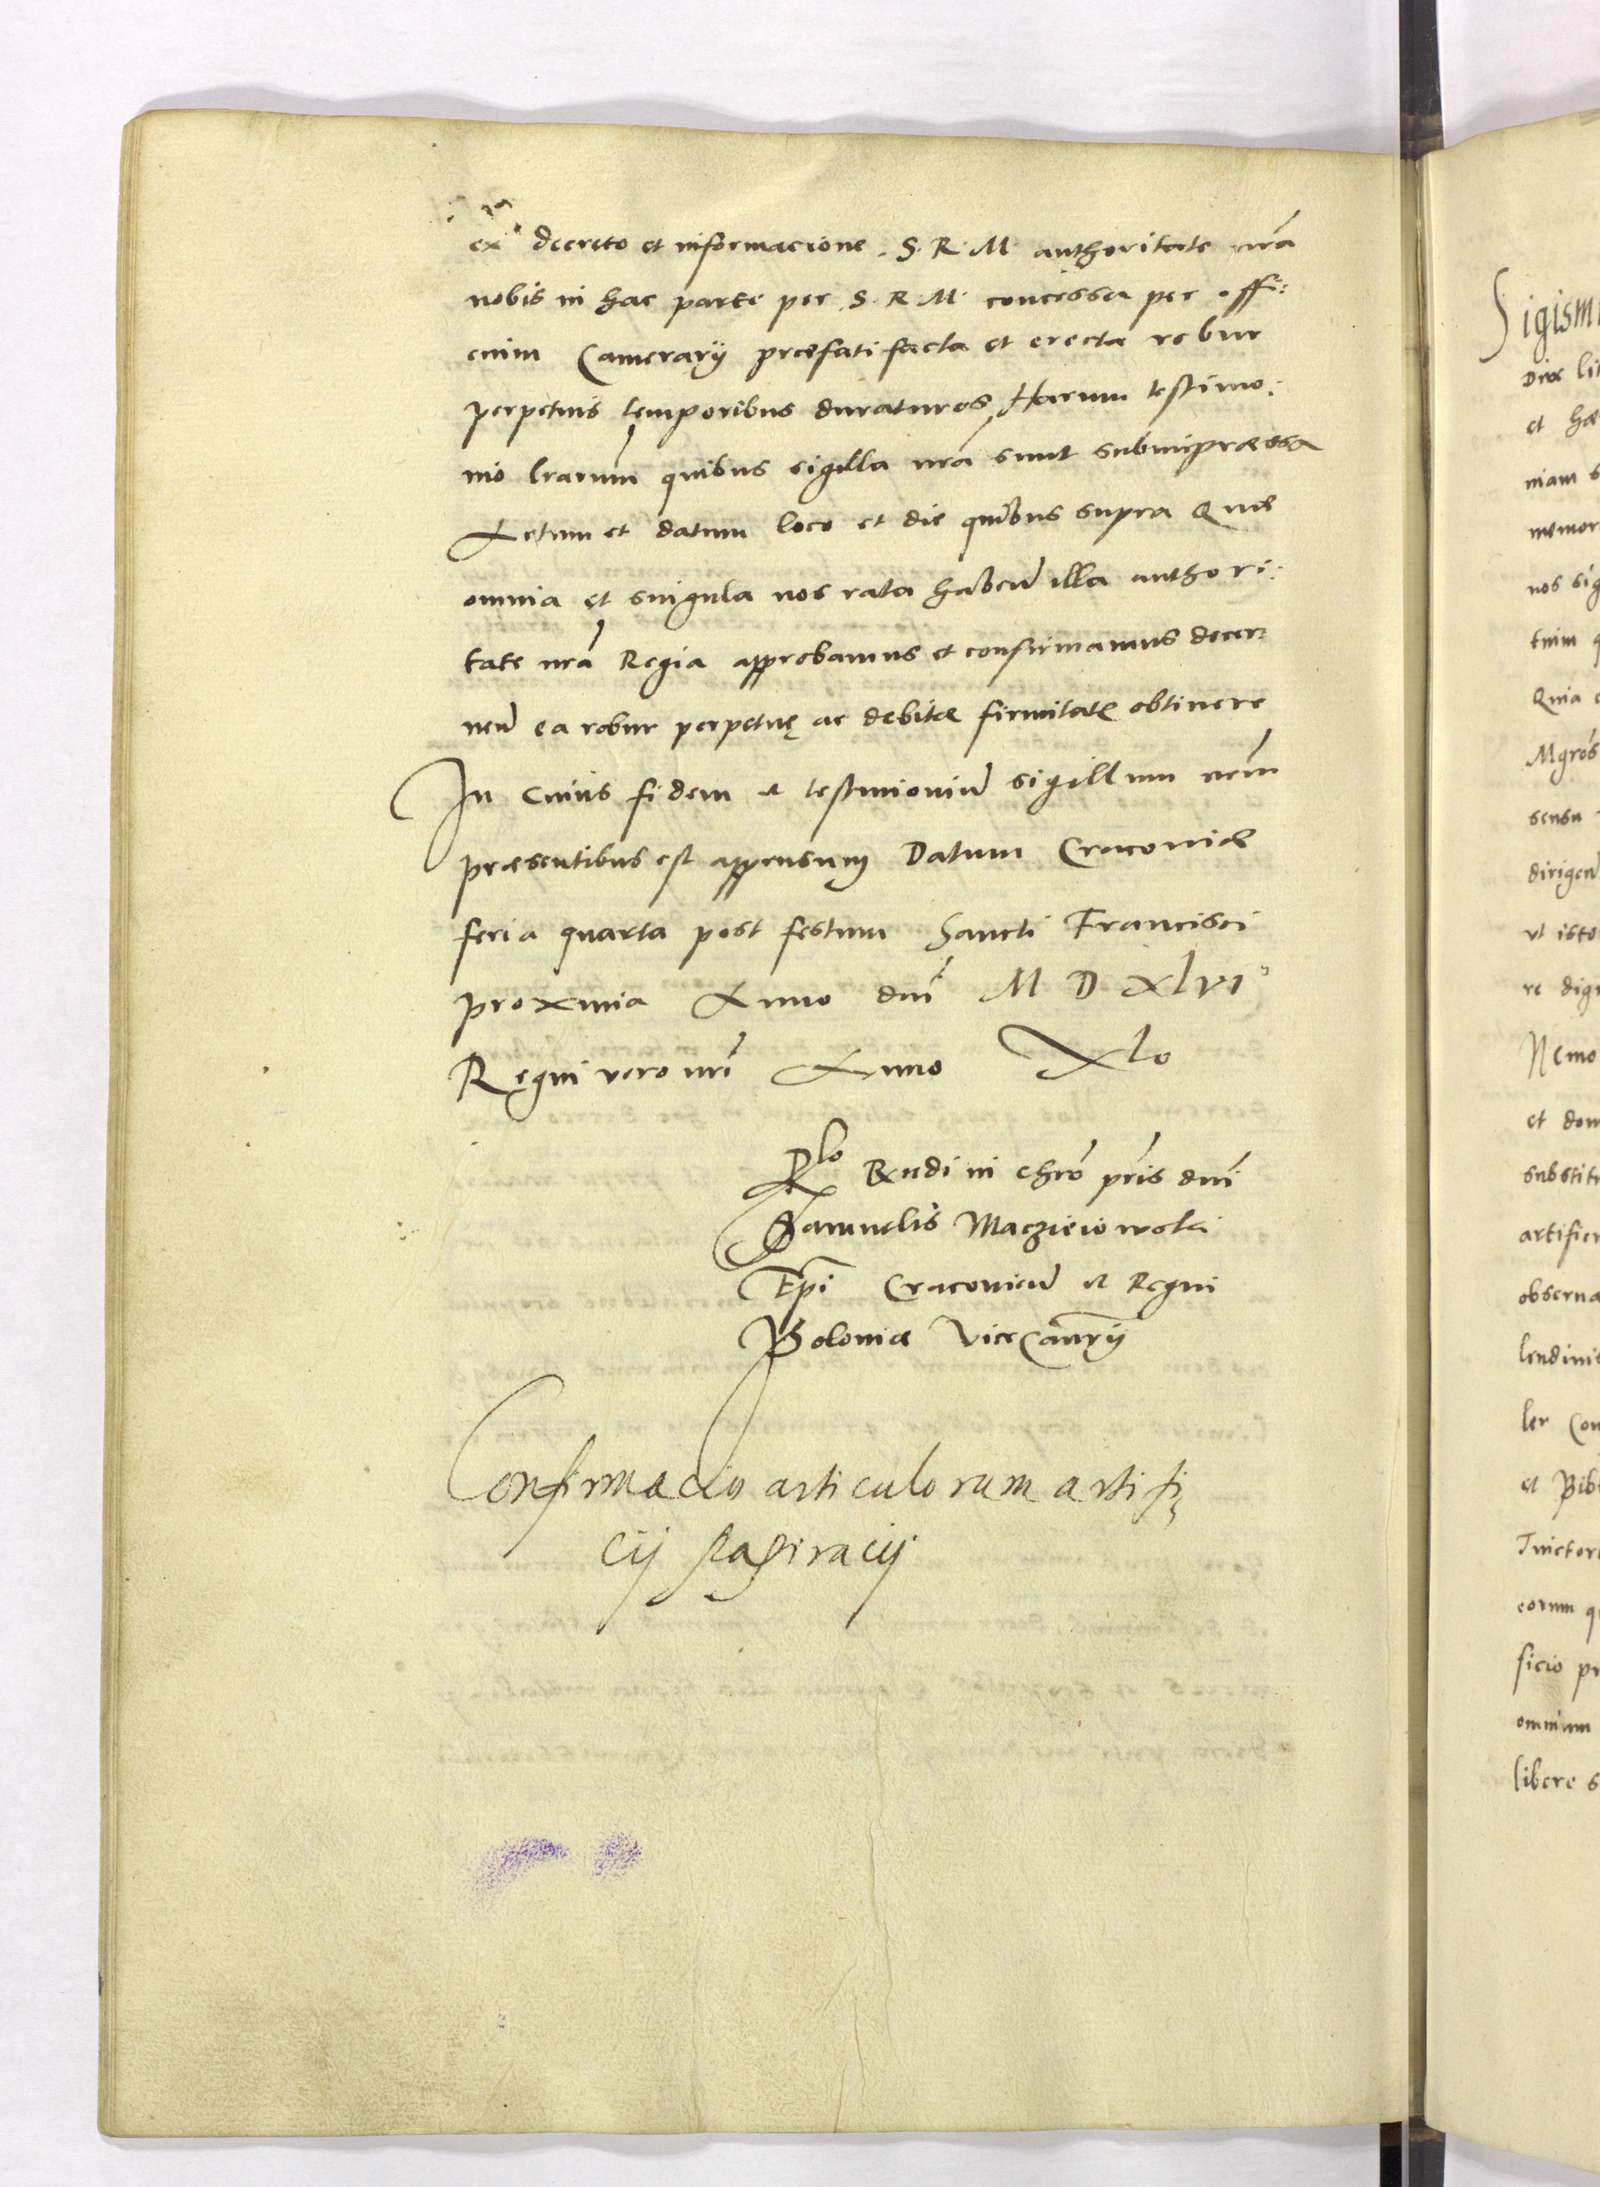 ex decreto et informacione S. R. M. authoritate nrã
nobis in hac parte per S. R. M. concessa per offi:
cium Camerarij praefati facta et erecta robur
perpetuis temporibus duraturos, Harum testimo:
nio lrarum quibus sigilla nrã sunt subimpraessa
Actum et datum loco et die quibus supra Quae
omnia et singula nos rata haben̄ illa authori:
tate nrã Regia approbamus et confirmamus decer:
nen̄ ea robur perpetuę ac debitae firmitatę obtinere
In cuius fidem et testimoniũ sigillum nrm̃
praesentibus est appensum Datum Cracoviae
feria quarta post festum Sancti Francisci
proxima Anno dnĩ M D XLVI
Regni vero nrĩ Anno XLo
Rlo Rndi in chrõ pris̃ dnĩ
Samuelis Maczieiowski
Epĩ Cracovien̄ et Regni
Poloniae Vicecancrij
Confirmacio articulorum artifi
cij papiracij
Sigism
Dux lit
et hæ
niam s
memor
nos sig
tuim q
Quia e
Mgros
sensu
dirigen̄
vt isto
re dig
Nemo
et dom
substit
artificu
observa
lendinis
ler Con
et Bib
Tinctor
eorum qu
ficio pr
omnium
libere s